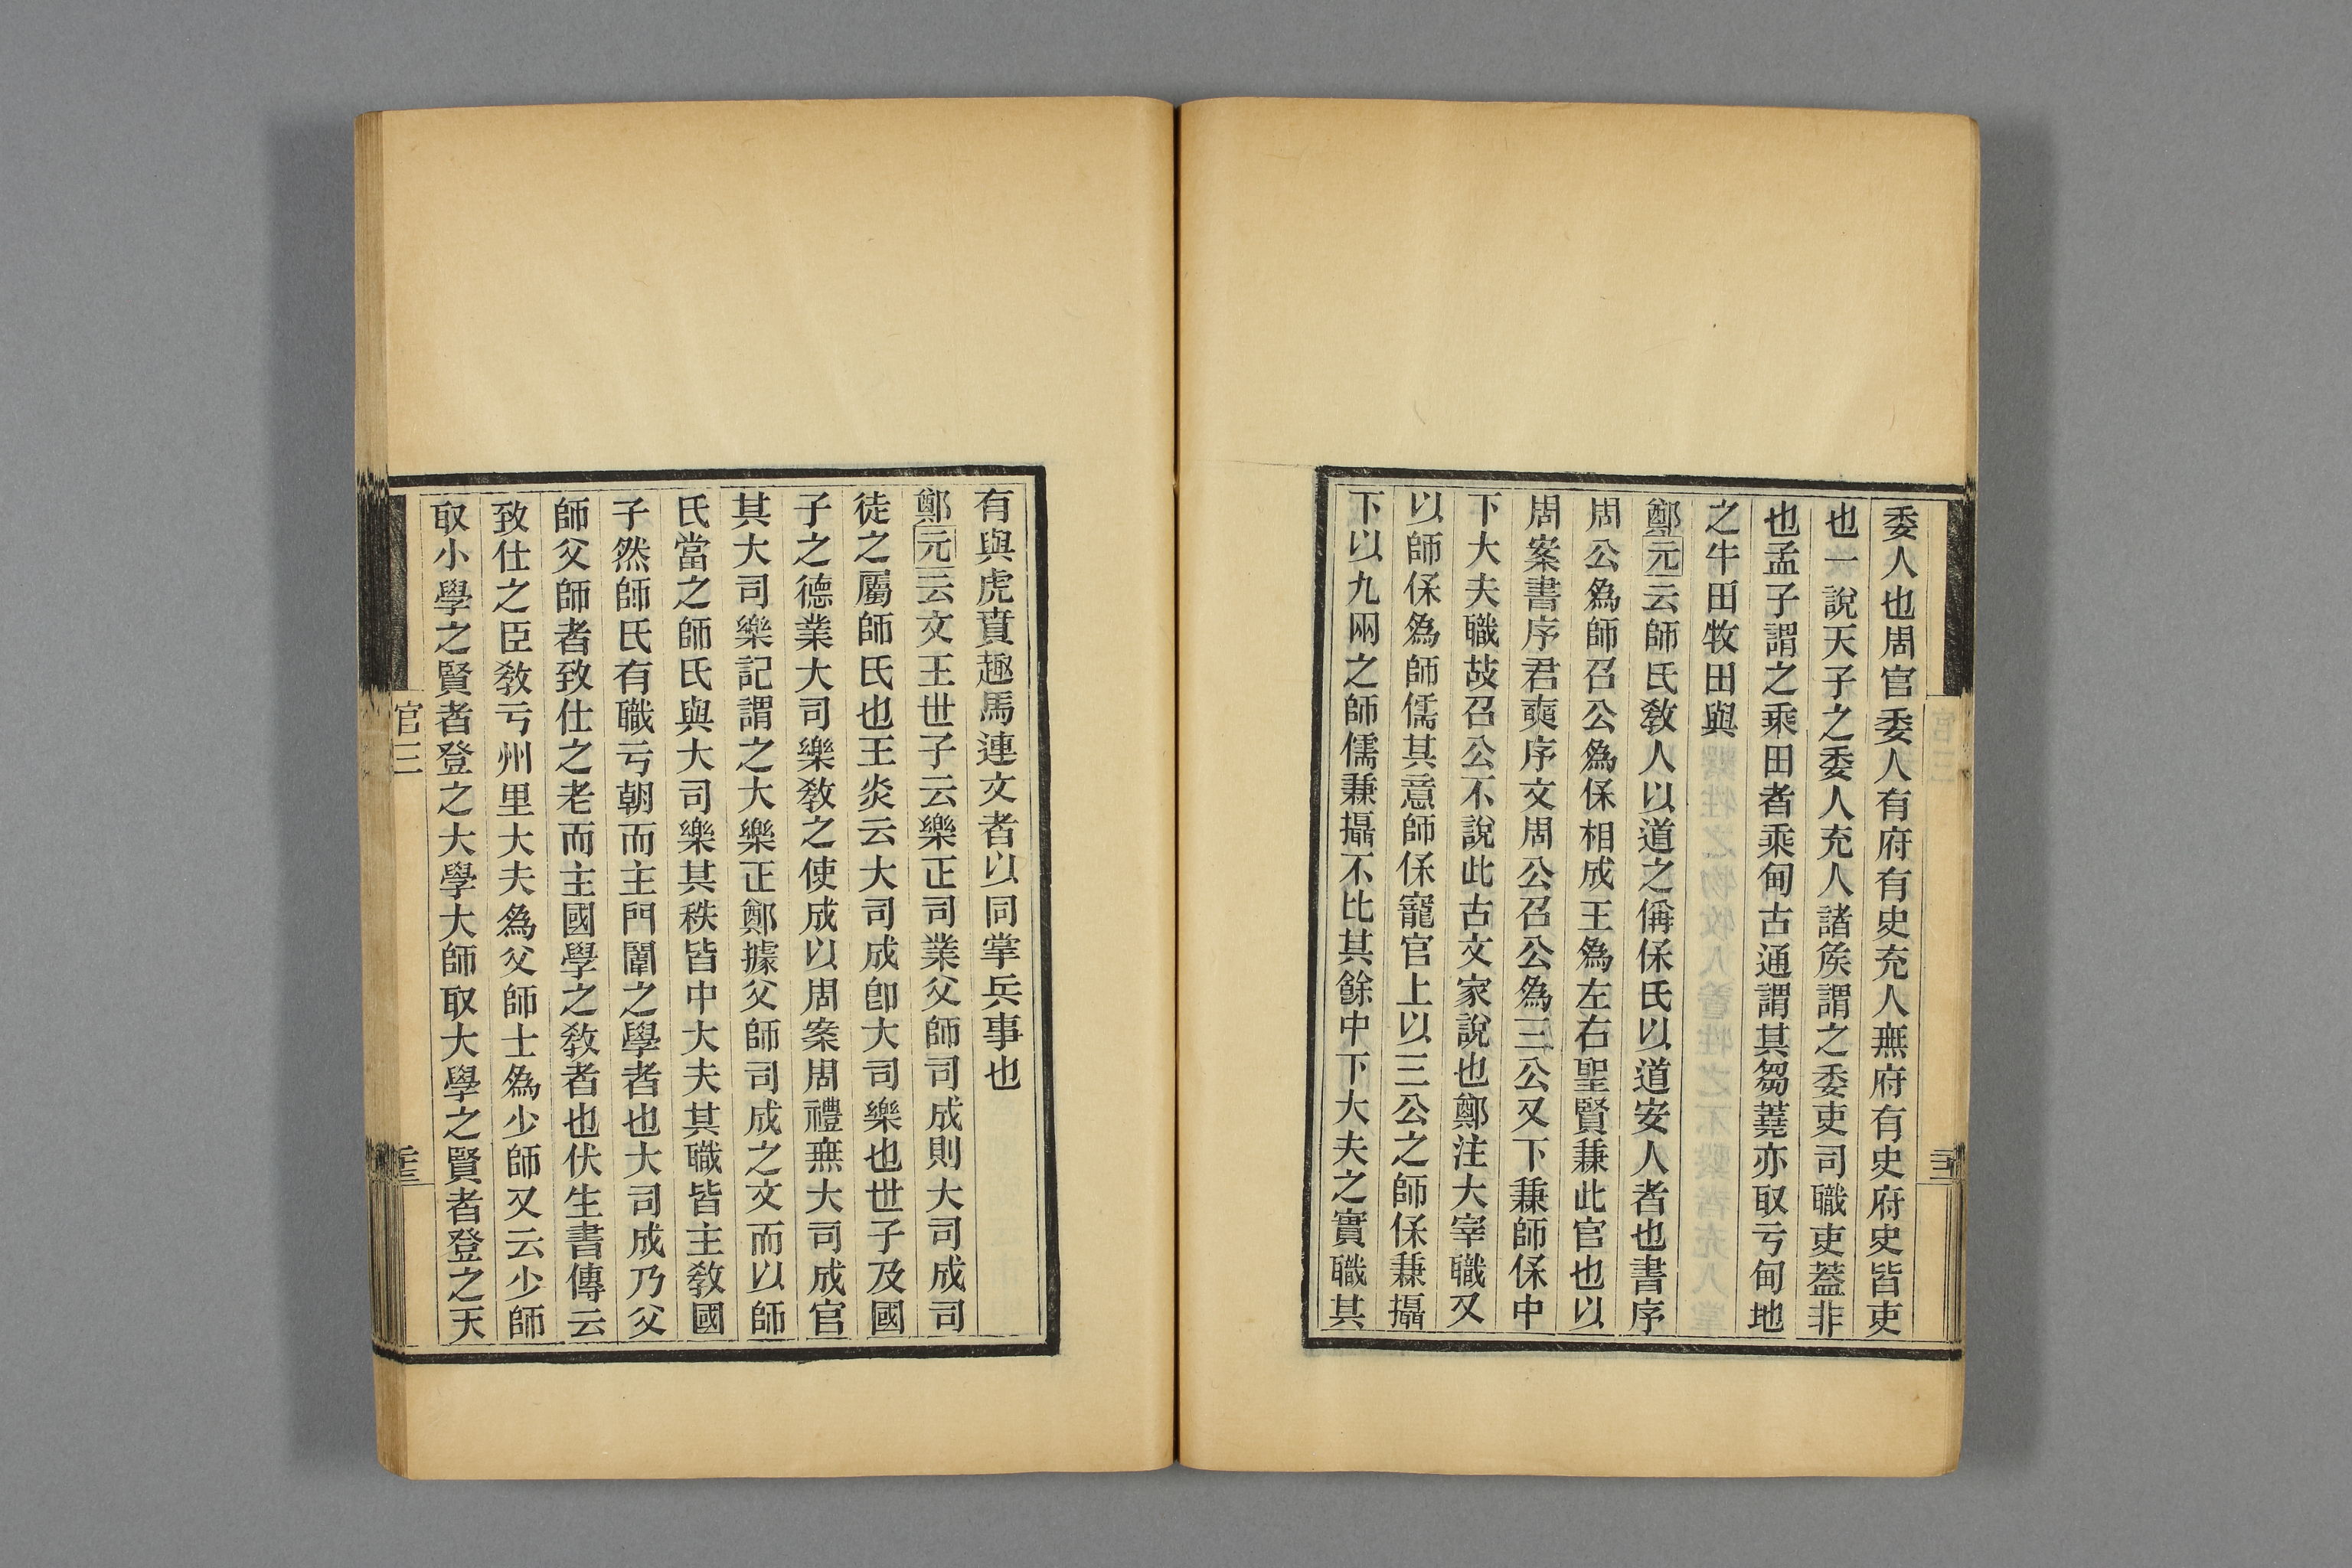 委人也周官委人有府有史充人無府有史府史皆吏
也一說天子之委人充人諸矦謂之委吏司職吏葢非
也孟子謂之乘田者乘甸古通謂其芻蕘亦取亏甸地
之牛田牧田與
鄭元云師氏敎人以道之偁保氏以道安人者也書序
周公爲師召公爲保相成王爲左右聖賢兼此官也以
周案書序君奭序文周公召公爲三公又下兼師保中
下大夫職故召公不說此古文家說也鄭注大宰職又
以師保爲師儒其意師保寵官上以三公之師保兼攝
下以九兩之師儒兼攝不比其餘中下大夫之實職其
有與虎賁趣馬連文者以同掌兵事也
鄭元云文王世子云樂正司業父師司成則大司成司
徒之屬師氏也王炎云大司成卽大司樂也世子及國
子之德業大司樂敎之使成以周案周禮無大司成官
其大司樂記謂之大樂正鄭據父師司成之文而以師
氏當之師氏與大司樂其秩皆中大夫其職皆主敎國
子然師氏有職亏朝而主門闈之學者也大司成乃父
師父師者致仕之老而主國學之敎者也伏生書傳云
致仕之臣敎亏州里大夫爲父師士爲少師又云少師
取小學之賢者登之大學大師取大學之賢者登之天
官三